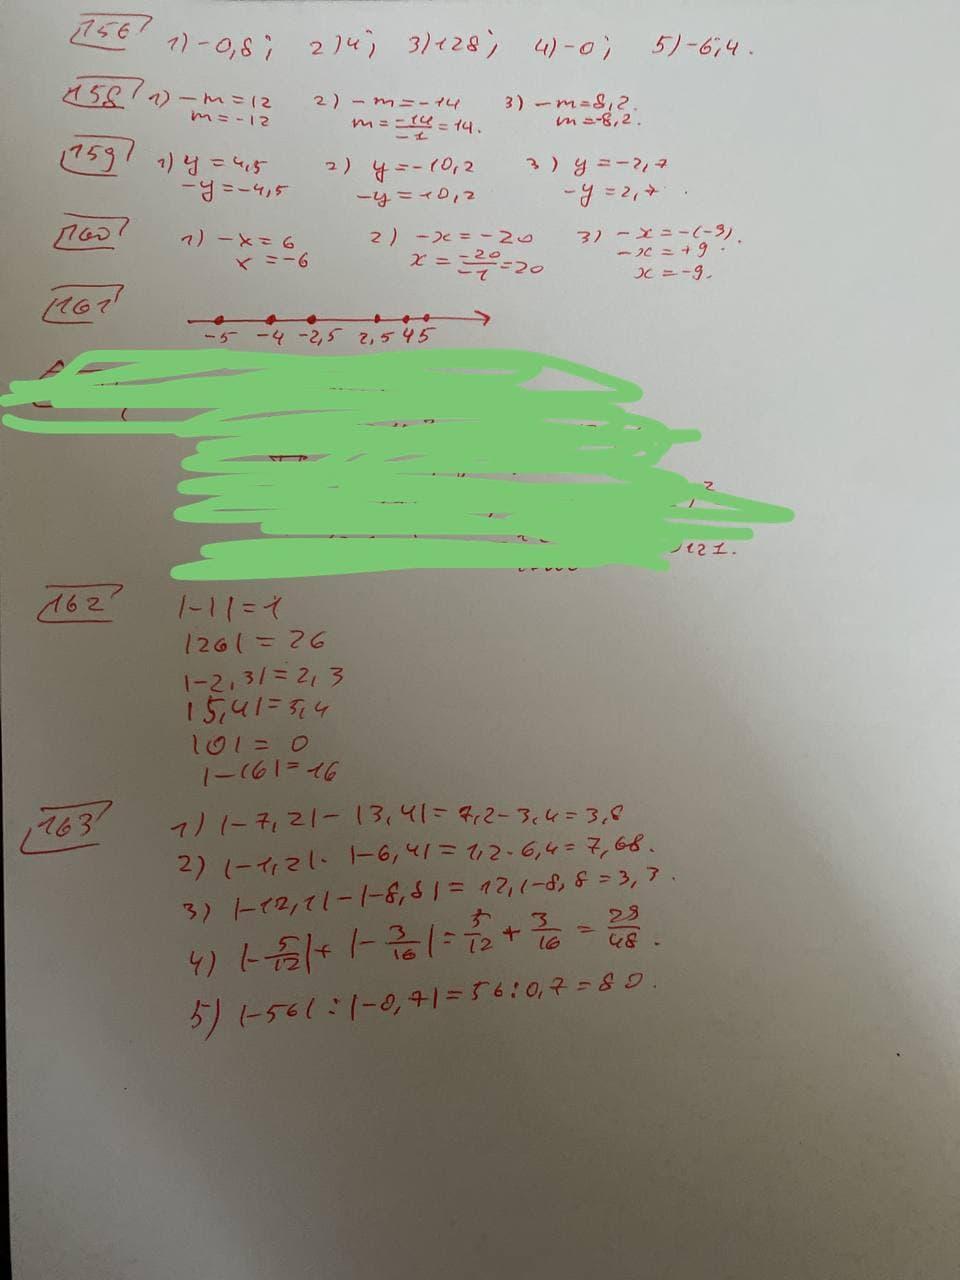 156 1) -0,8; 2) 4; 3) 128; 4) -0; 5) -6,4.
158 1) -m = 12 2) -m = -14 3) -m = 8,2.
m = -12 m = -14/-1 = 14. m = -8,2.
159 1) y = 4,5 2) y = -10,2 3) y = -2,7
-y = -4,5 -y = 10,2 -y = 2,7.
160 1) -x = 6 2) -x = -20 3) -x = -(-9).
x = -6 x = -20/-1 = 20 -x = +9.
x = -9.
161
-5 -4 -2,5 2,5 4 5
121.
162 |-1| = 1
|26| = 26
|-2,3| = 2,3
|5,4| = 5,4
|0| = 0
|-16| = 16
163 1) |-7,2| - |3,4| = 7,2 - 3,4 = 3,8
2) |-1,2| · |-6,4| = 1,2 · 6,4 = 7,68.
3) |-12,1| - |-8,8| = 12,1 - 8,8 = 3,3.
4) |-5/12| + |-3/16| = 5/12 + 3/16 = 29/48.
5) |-56| : |-0,7| = 56 : 0,7 = 80.